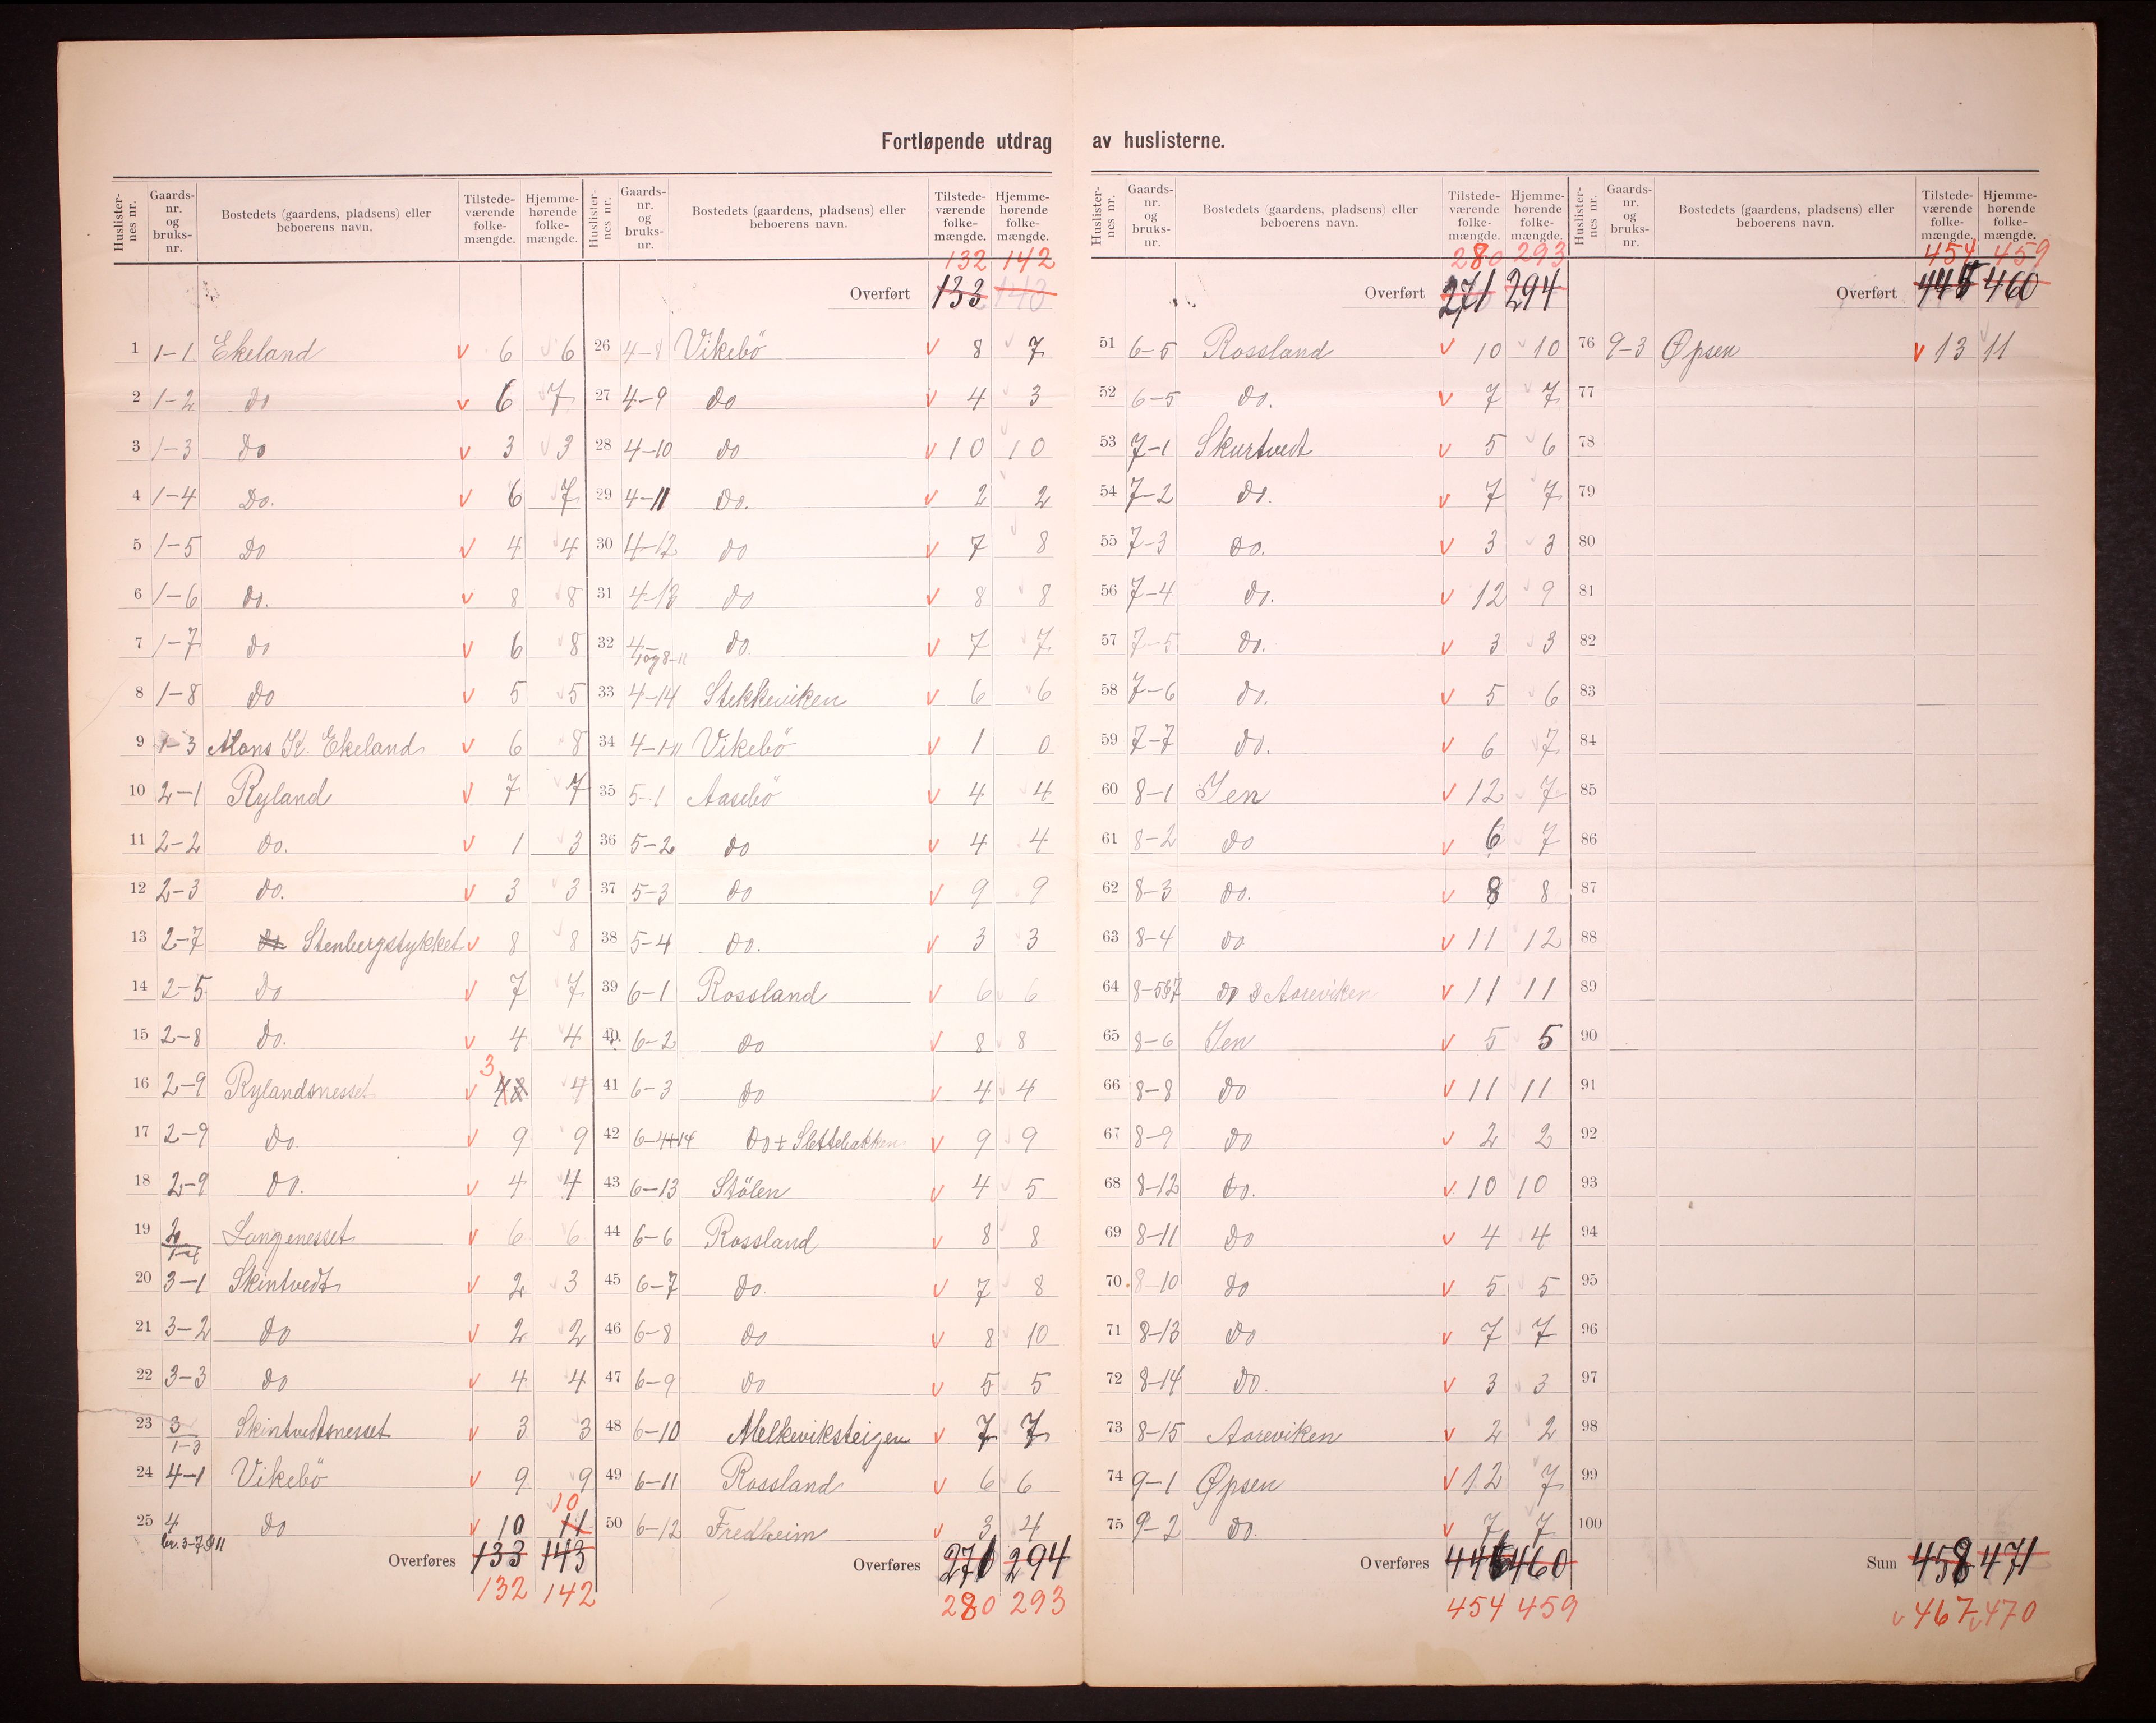 Fortløpende utdrag av huslisterne.
Huslister-nes nr. Gaards-nr. og bruks-nr. Bostedets (gaardens, pladsens) eller beboerens navn. Tilstede-værende folke-mængde. Hjemme-hørende folke-mængde.
1 1-1 Ekeland v 6 v 6
2 1-2 Do v 6 v 7
3 1-3 Do v 3 v 3
4 1-4 Do. v 6 v 7
5 1-5 Do v 4 v 4
6 1-6 Do. v 8 v 8
7 1-7 Do v 6 v 8
8 1-8 Do v 5 v 5
9 1-3 Mons K. Ekeland v 6 v 8
10 2-1 Ryland v 7 v 7
11 2-2 Do. v 1 v 3
12 2-3 Do. v 3 v 3
13 2-7 Stenbergstykket v 8 v 8
14 2-5 Do v 7 v 7
15 2-8 Do. v 4 v 4
16 2-9 Rylandsnesset v 3 v 4
17 2-9 Do. v 9 v 9
18 2-9 Do. v 4 v 4
19 2 1-4 Langenesset v 6 v 6
20 3-1 Skintvedt v 2 v 3
21 3-2 Do v 2 v 2
22 3-3 Do v 4 v 4
23 3 1-3 Skintvedtnesset v 3 v 3
24 4-1 Vikebö v 9 v 9
25 4 br. 3-7911 Do v 10 11 v 10
Overføres 133 143
132 142
Huslister-nes nr. Gaards-nr. og bruks-nr. Bostedets (gaardens, pladsens) eller beboerens navn. Tilstede-værende folke-mængde. Hjemme-hørende folke-mængde.
132 142
Overført 133 143
26 4-8 Vikebö v 8 v 7
27 4-9 Do v 4 v 3
28 4-10 Do v 10 v 10
29 4-11 Do. v 2 v 2
30 4-12 Do v 7 v 8
31 4-13 Do v 8 v 8
32 4 1 og 8-11 Do. v 7 v 7
33 4-14 Stekkeviken v 6 v 6
34 4-1-11 Vikebö v 1 v 0
35 5-1 Aasebö v 4 v 4
36 5-2 Do v 4 4
37 5-3 Do v 9 9
38 5-4 Do. v 3 v 3
39 6-1 Rossland v 6 v 6
40 6-2 Do v 8 v 8
41 6-3 Do v 4 v 4
42 6-4+14 Do + Slettebakken v 9 v 9
43 6-13 Stölen v 4 v 5
44 6-6 Rossland v 8 v 8
45 6-7 Do. v 7 v 8
46 6-8 Do v 8 v 10
47 6-9 Do v 5 v 5
48 6-10 Melkeviksteigen v 7 v 7
49 6-11 Rossland v 6 v 6
50 6-12 Fredheim v 3 v 4
Overføres 271 294
280 293
Huslister-nes nr. Gaards-nr. og bruks-nr. Bostedets (gaardens, pladsens) eller beboerens navn. Tilstede-værende folke-mængde. Hjemme-hørende folke-mængde.
280 293
Overført 271 294
51 6-5 Rossland v 10 v 10
52 6-5 Do. v 7 v 7
53 7-1 Skurtvedt v 5 v 6
54 7-2 Do. v 7 v 7
55 7-3 Do. v 3 v 3
56 7-4 Do. v 12 v 9
57 7-5 Do. v 3 v 3
58 7-6 Do. v 5 v 6
59 7-7 Do. v 6 v 7
60 8-1 Jen v 12 v 7
61 8-2 Do v 6 v 7
62 8-3 Do. v 8 v 8
63 8-4 Do v 11 12
64 8-5&7 Do & Aareviken v 11 11
65 8-6 Jen v 5 v 5
66 8-8 Do v 11 v 11
67 8-9 Do v 2 v 2
68 8-12 Do. v 10 10
69 8-11 Do v 4 v 4
70 8-10 Do v 5 v 5
71 8-13 Do v 7 v 7
72 8-14 Do. v 3 v 3
73 8-15 Aareviken v 2 v 2
74 9-1 Øpsen v 12 v 7
75 9-2 Do. v 7 v 7
Overføres 445 460
454 459
Huslister-nes nr. Gaards-nr. og bruks-nr. Bostedets (gaardens, pladsens) eller beboerens navn. Tilstede-værende folke-mængde. Hjemme-hørende folke-mængde.
454 459
Overført 445 460
76 9-3 Øpsen v 13 v 11
77
78
79
80
81
82
83
84
85
86
87
88
89
90
91
92
93
94
95
96
97
98
99
100
Sum 458 471
v 467 v 470